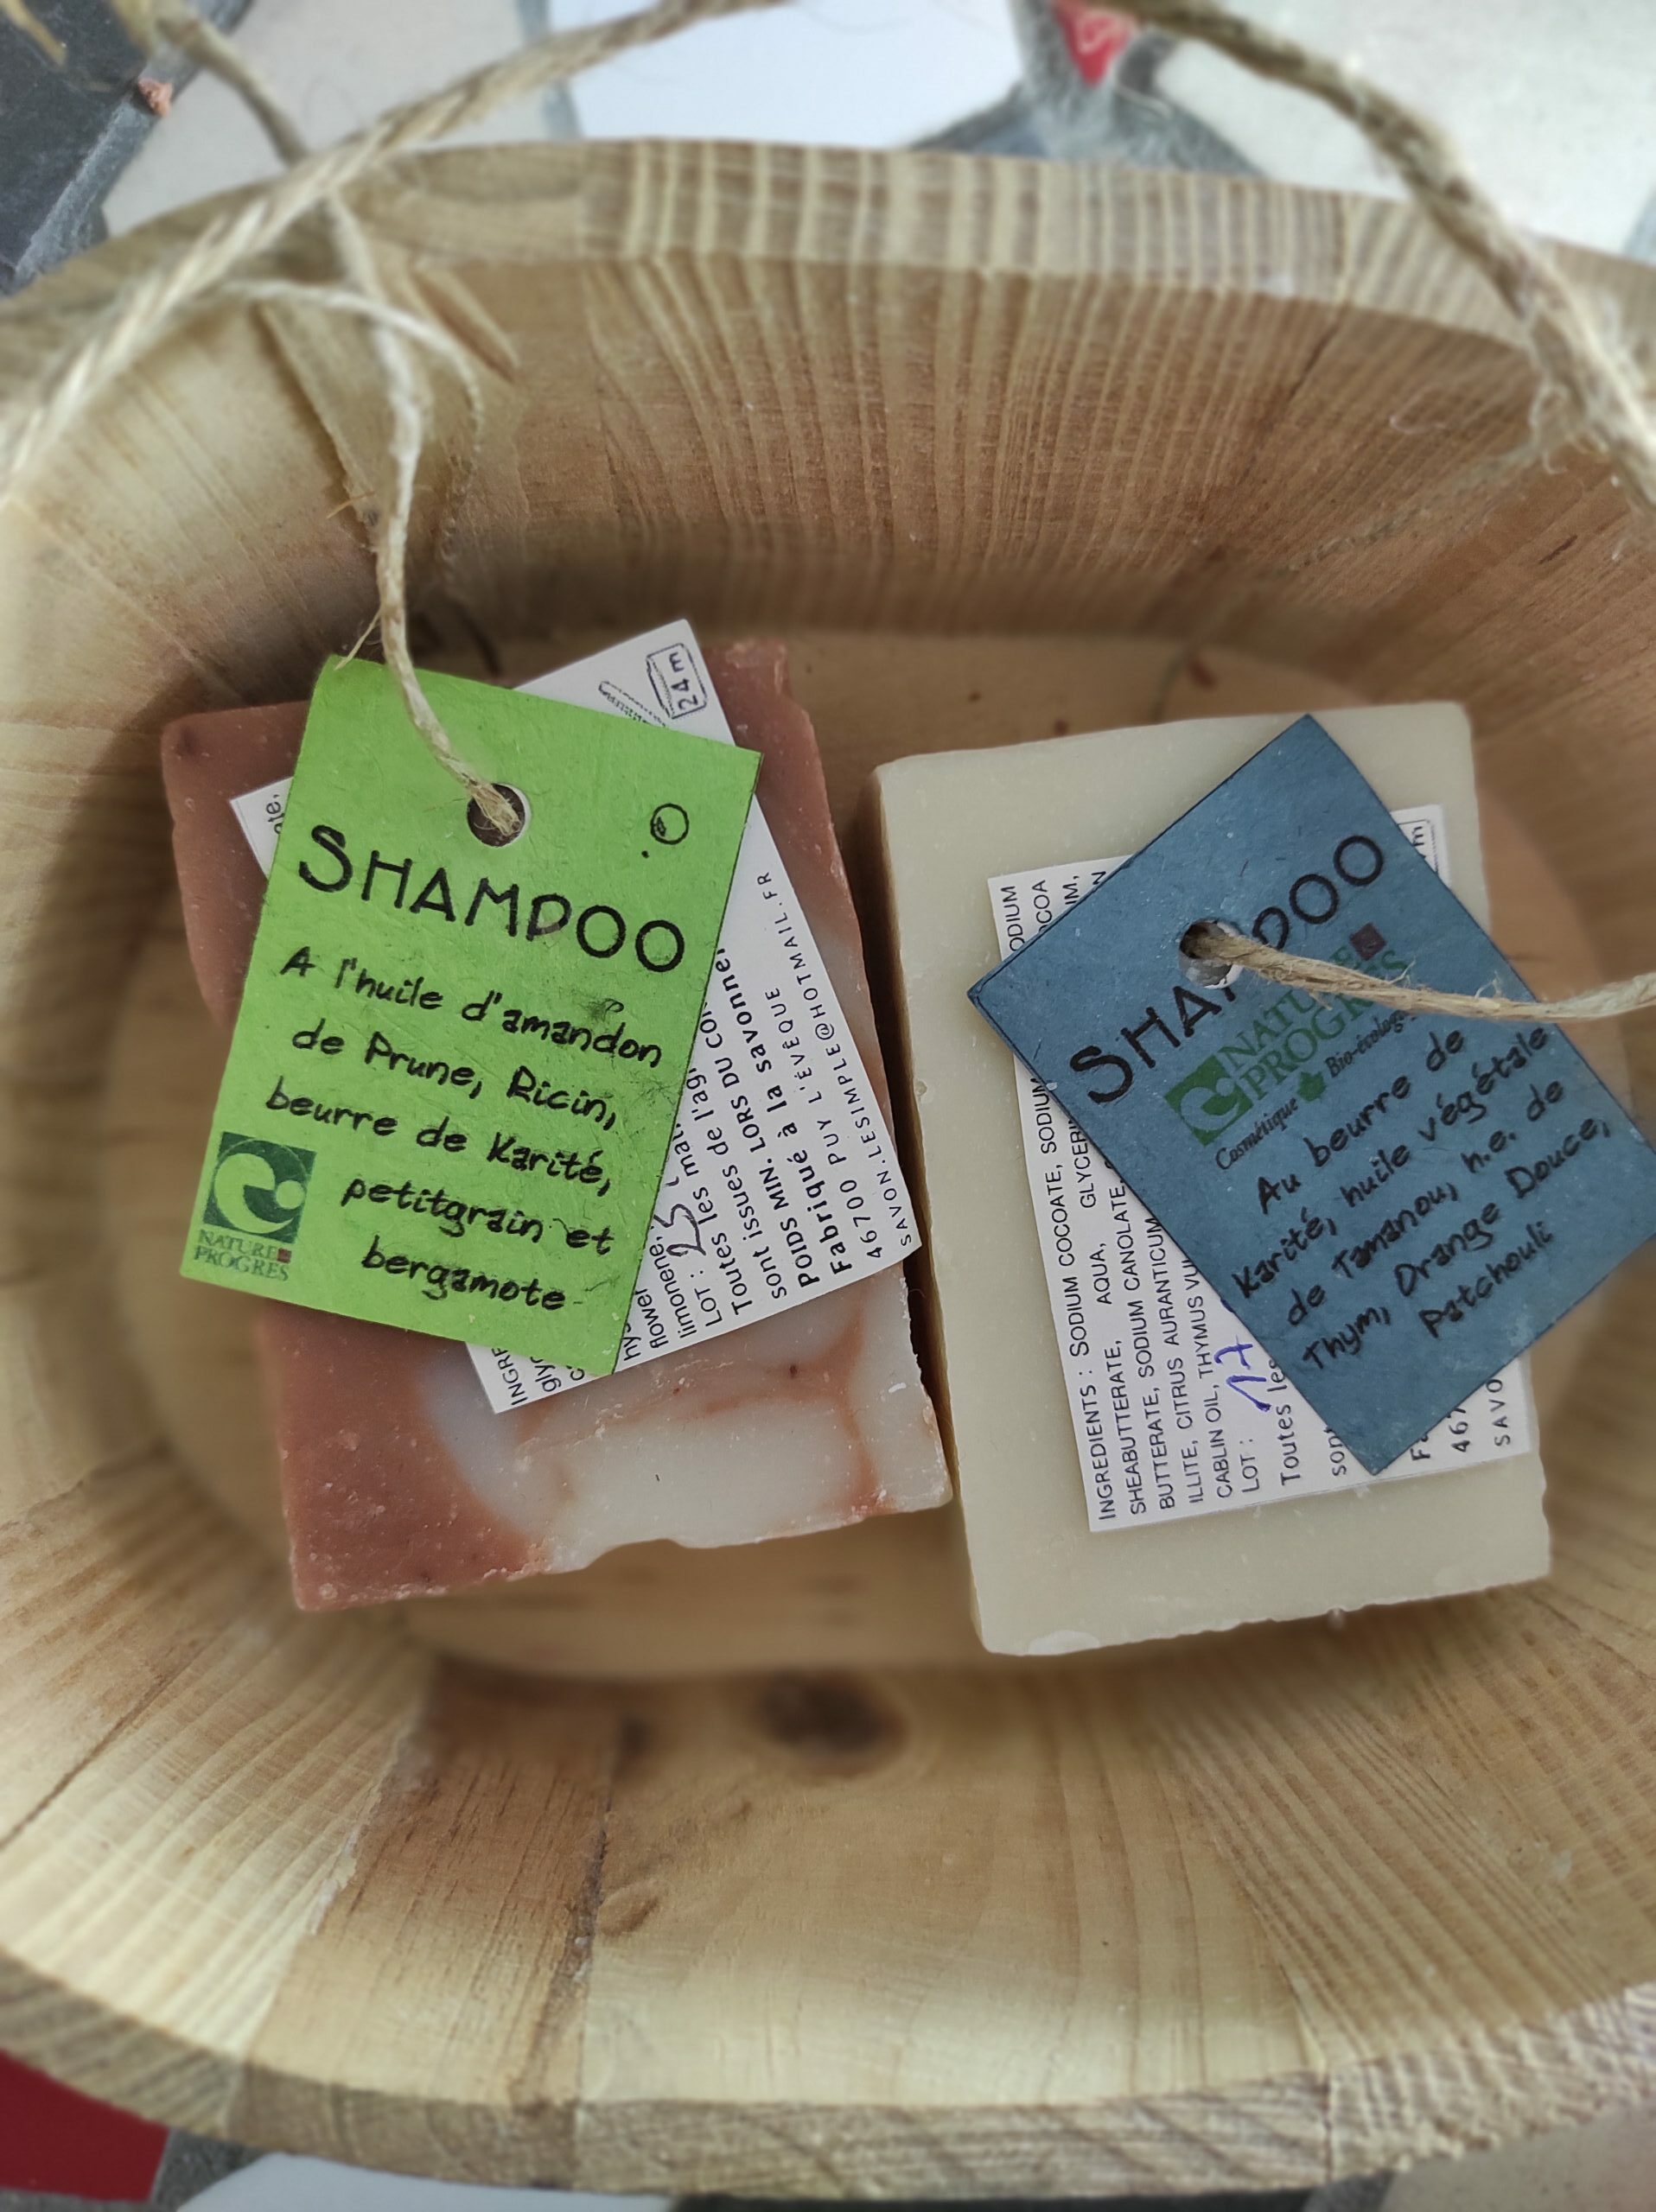 SHAMPOO
A l'huile d'amandon
de Prune, Ricin,
beurre de Karité,
petitgrain et
bergamote
NATURE
PROGRES
24m
INGRE
flower,
limonene,
LOT : 25
Toutes les mat
sont issues de l'agr
POIDS MIN. LORS DU CON
Fabriqué à la savonner
46700 PUY L'ÉVÊQUE
SAVON.LESIMPLE@HOTMAIL.FR
SHAMPOO
NATURE
PROGRES
Cosmétique Bio-écologi
Au beurre de
Karité, huile végétale
de Tamanou, h.e. de
Thym, Orange Douce,
Patchouli
INGREDIENTS : SODIUM COCOATE, SODIUM
SHEABUTTERATE, AQUA, GLYCERIN
BUTTERATE, SODIUM CANOLATE,
ILLITE, CITRUS AURANTICUM
CABLIN OIL, THYMUS VUL
LOT : 17
Toutes les
sont
467
SAVO